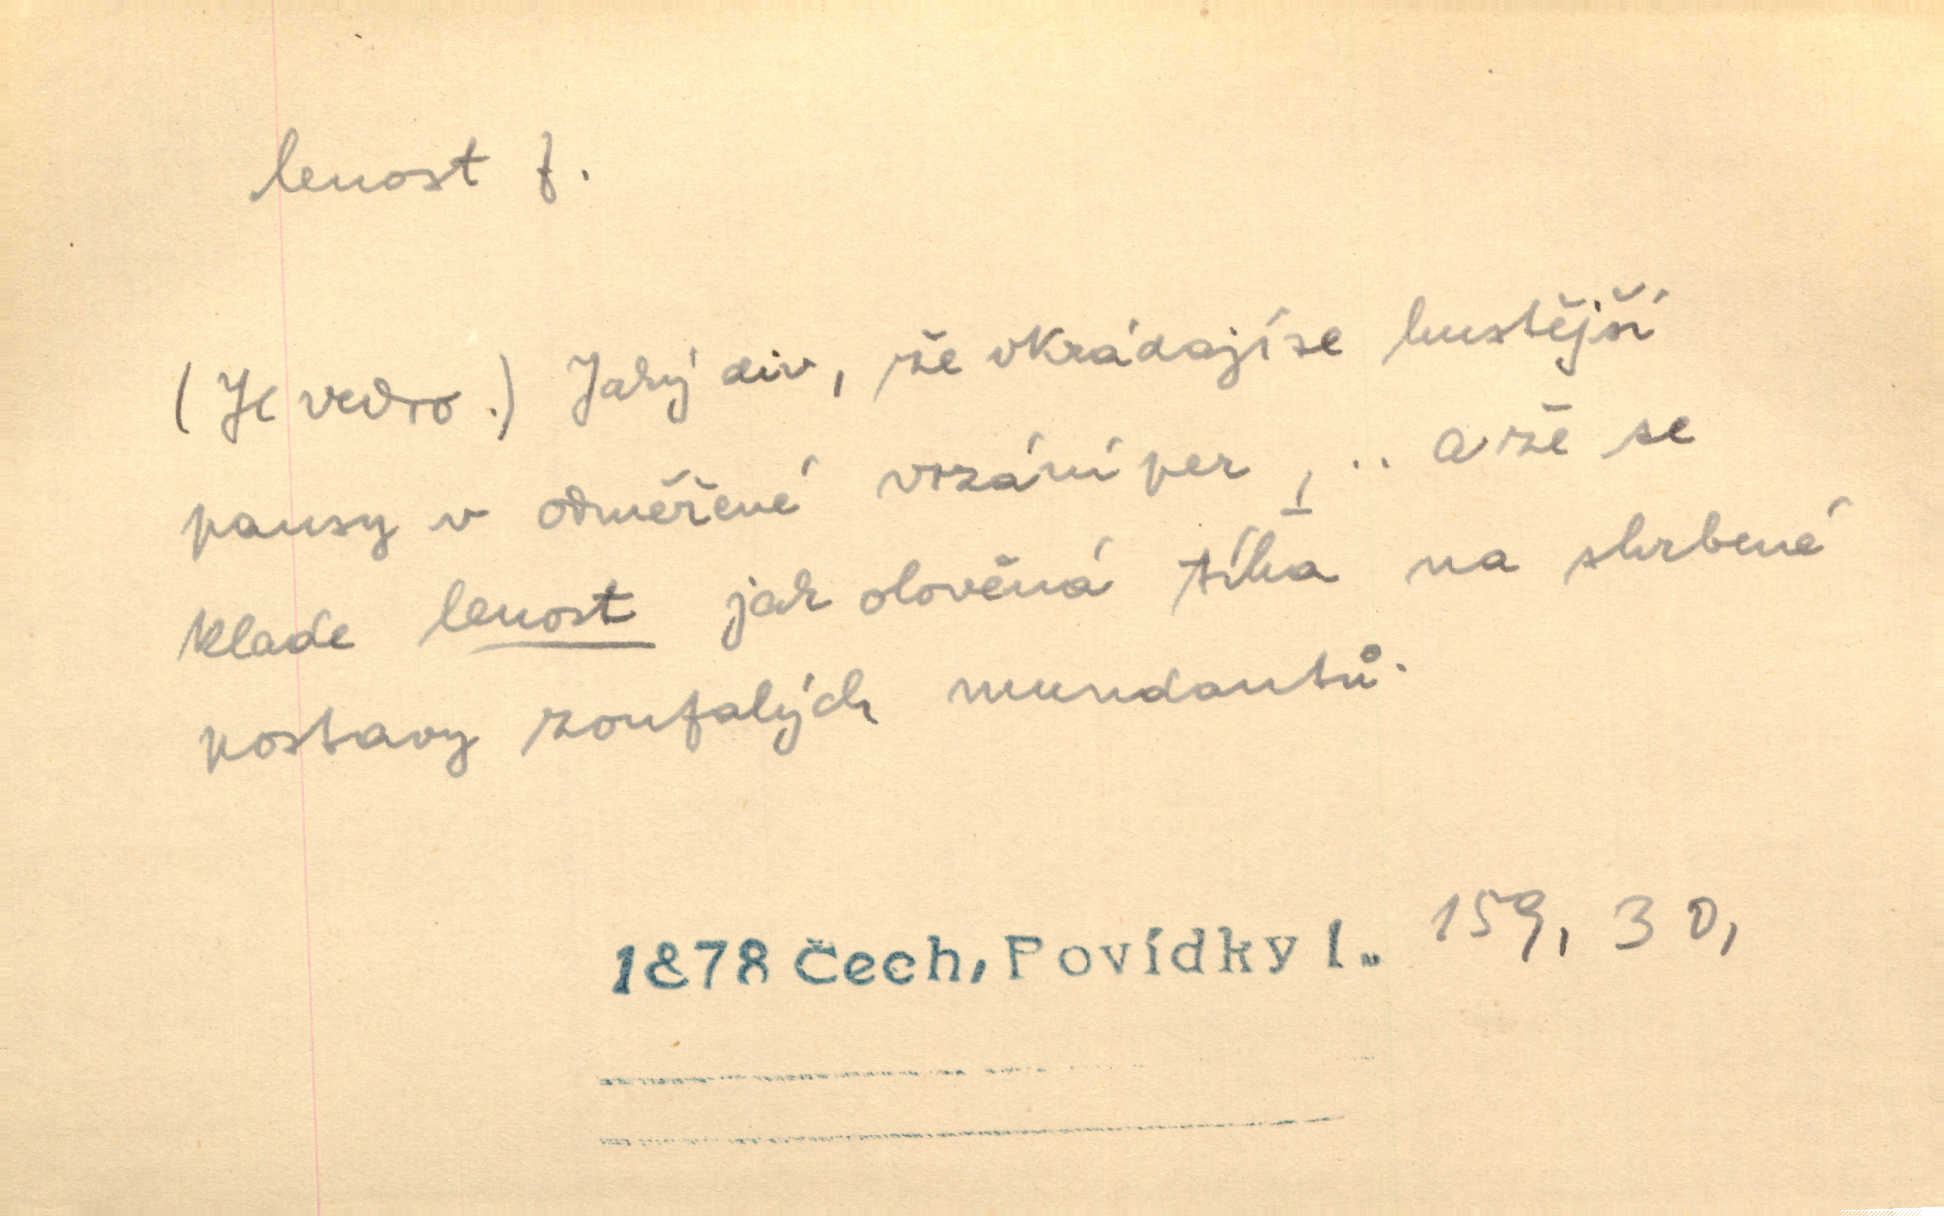 lenost f.
(Je vedro.) Jaký div, že vkrádají se hustější
pausy v odměřené vrzání per, .. a že se
klade lenost jak olověná tíha na shrbené
postavy zoufalých mundantů.
1878 Čech, Povídky I., 159, 30,